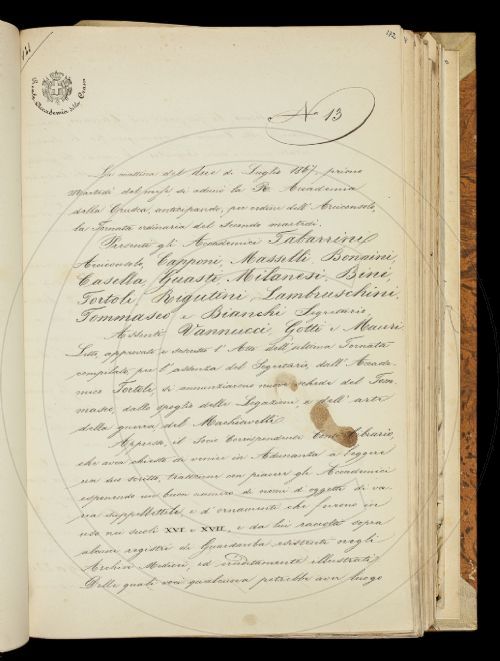 142
Reale Accademia della Crusca
No 13
La mattina del due di Luglio 1867, primo
martedì del mese si adunò la R. Accademia
della Crusca, anticipando, per ordine dell'Arciconsolo,
la Tornata ordinaria del secondo martedì.
Presenti gli Accademici Tabarrini
Arciconsolo, Capponi, Masselli, Bonaini,
Casella, Guasti, Milanesi, Bini,
Tortoli, Rigutini, Lambruschini,
Tommaseo e Bianchi Segretario
Assenti Vannucci, Gotti e Mauri
Letto, approvato e l'Atto dell'ultima Tornata
compilato, per l'assenza del Segretario, dall'Accade-
mico Tortoli, si annunziarono nuove schede del Tom-
maseo, dallo spoglio delle Legazioni, e dell'arte
della guerra del Machiavelli
Appresso, il Socio Corrispondente Conte Cibrario,
che avea chiesto di venire in Adunanza a leggere
un suo scritto, trattenne con piacere gli Accademici
esponendo un buon numero di nomi d'oggetti di va-
ria suppellettile, e d'ornamenti che furono in
uso nei secoli XVI e XVII, e da lui raccolti sopra
alcuni registri di Guardaroba esistenti negli
Archivi Medicei, ed eruditamente illustrati
Delle quali voci qualcuna potrebbe aver luogo